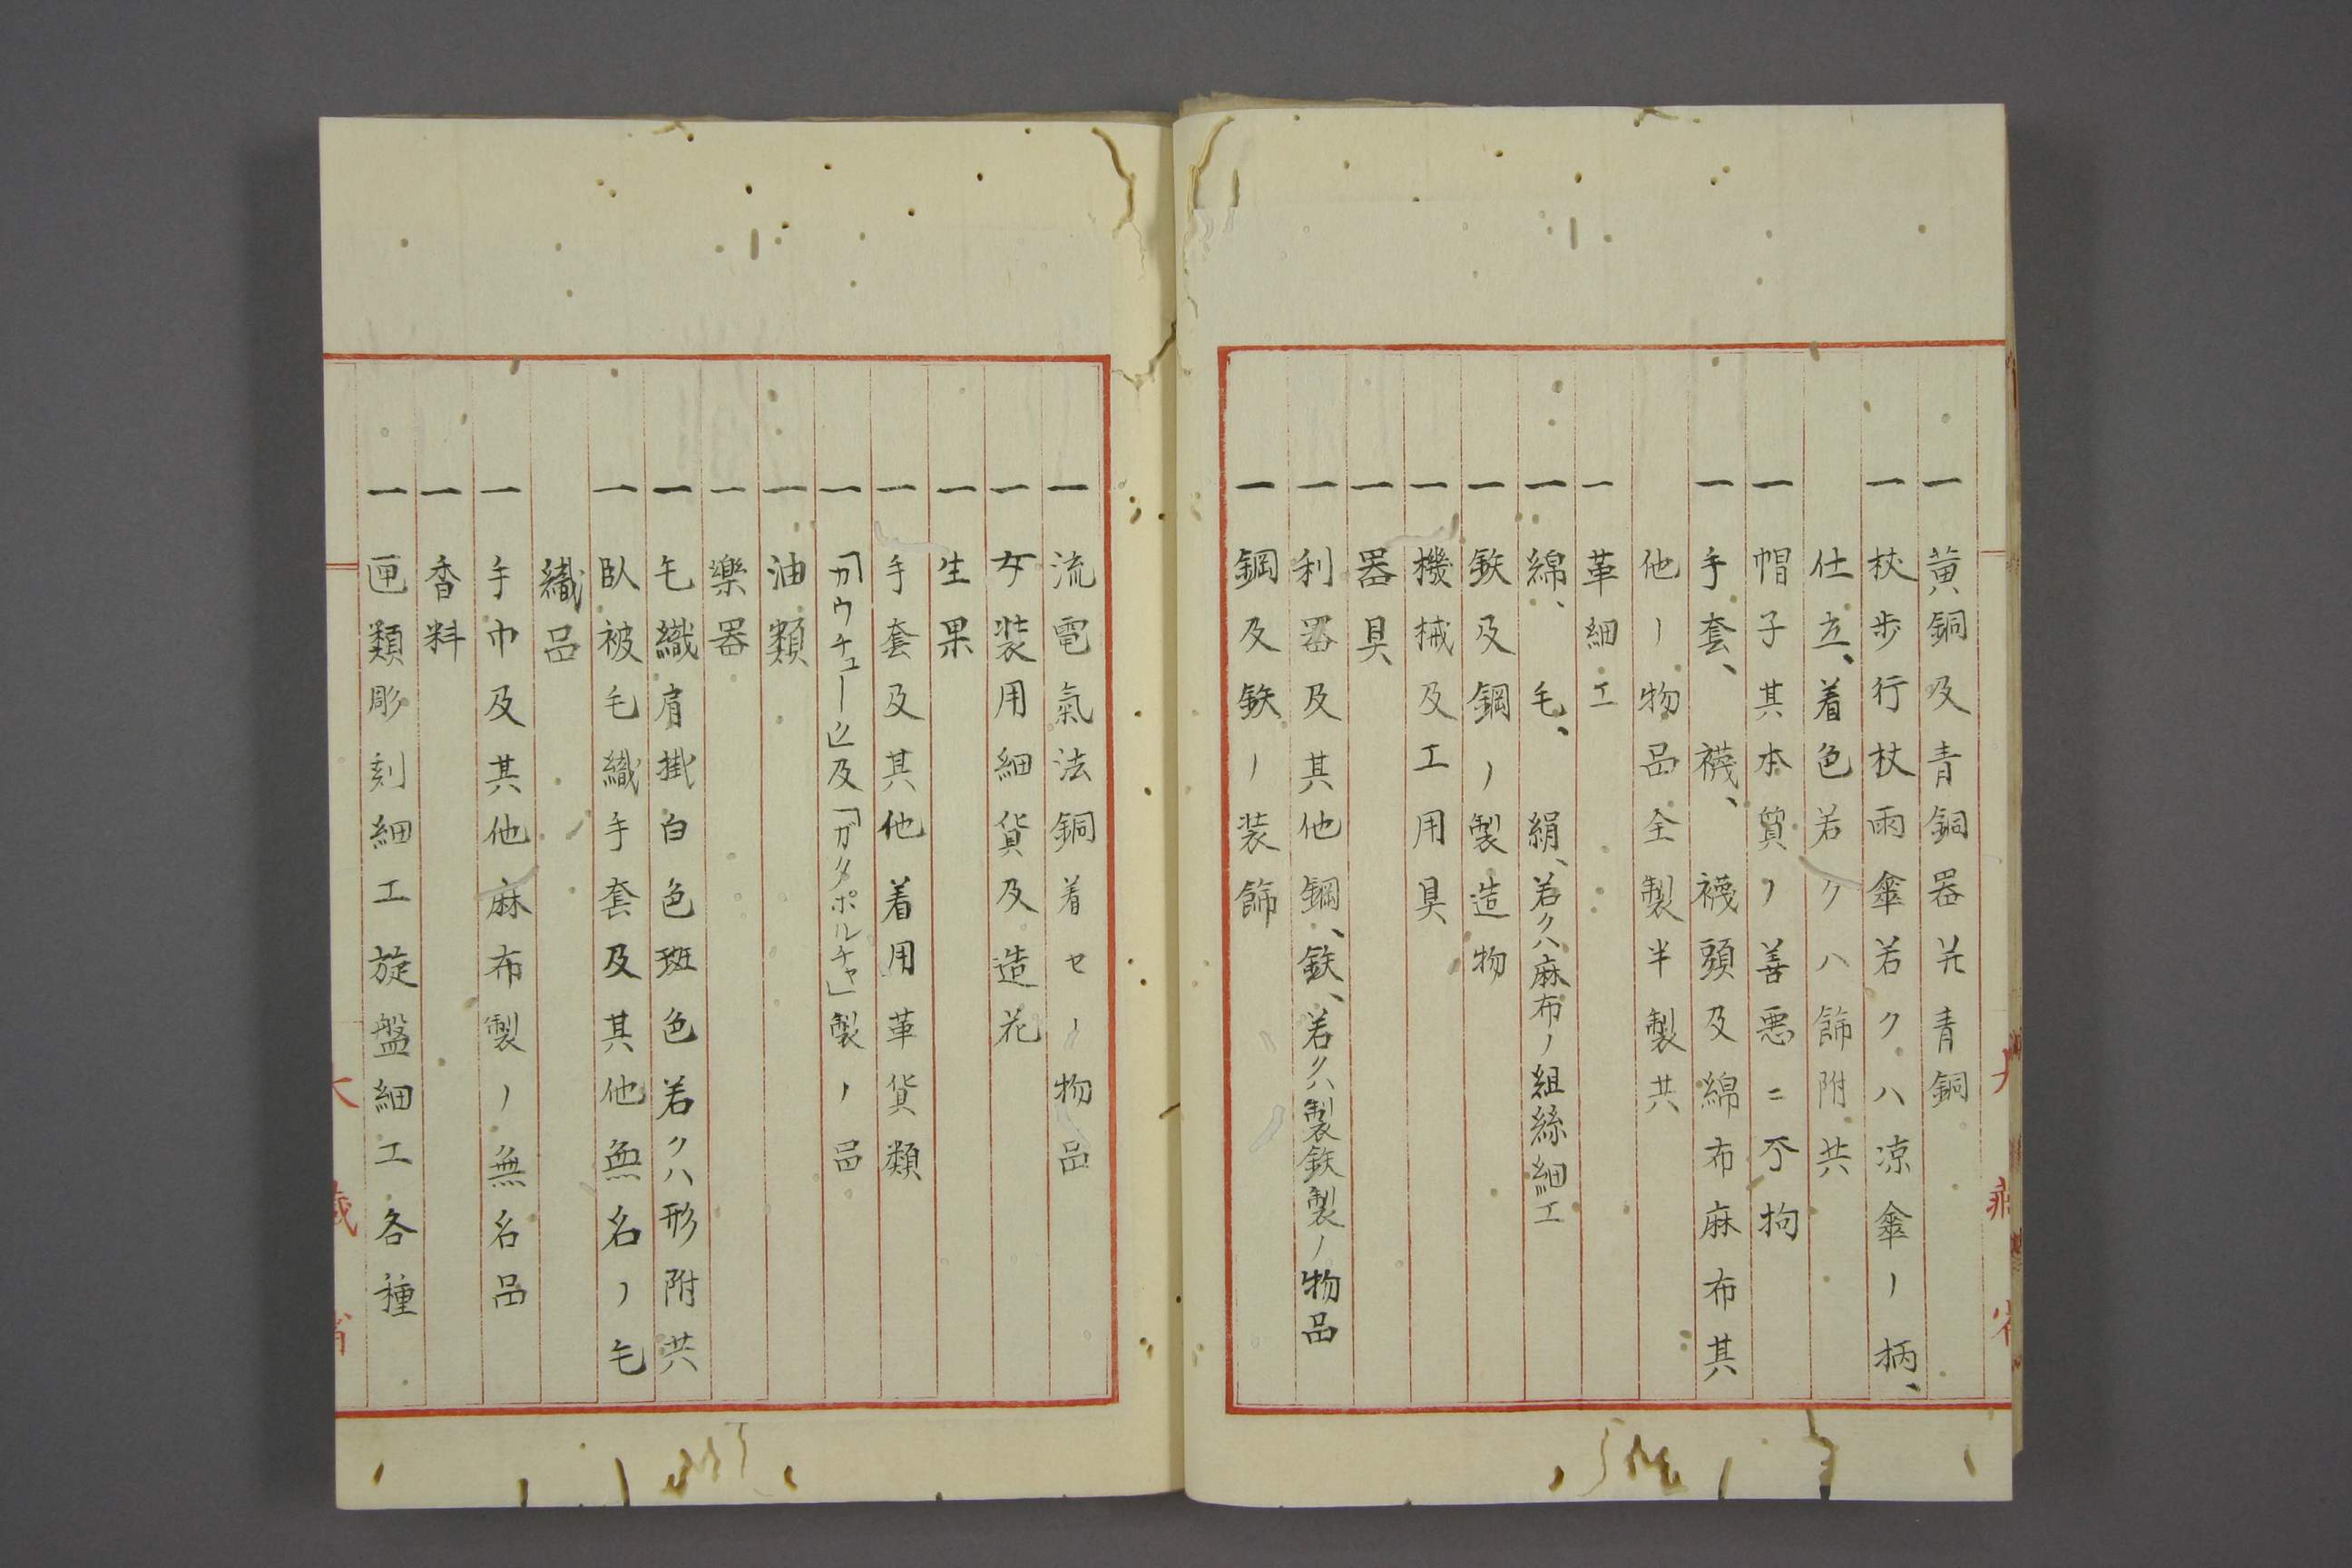 一 黄銅及青銅器并青銅
一 杖歩行杖雨傘若クハ凉傘ノ柄、
仕立、着色若クハ飾附共
一 帽子其本質ノ善悪ニ不拘
一 手套、襪、襪頭及綿布麻布其
他ノ物品全製半製共
一 革細工
一 綿、毛、絹、若クハ麻布ノ組絲細工
一 鉄及鋼ノ製造物
一 機械及工用具
一 器具
一 利器及其他鋼、鉄、若クハ製鉄製ノ物品
一 鋼及鉄ノ装飾
一 流電氣法銅着セノ物品
一 女装用細貨及造花
一 生果
一 手套及其他着用革貨類
一 「カウチューク」及「ガタポルチャ」製ノ品
一 油類
一 樂器
一 毛織肩掛白色斑色若クハ形附共
一 臥被毛織手套及其他無名ノ毛
織品
一 手巾及其他麻布製ノ無名品
一 香料
一 匣類彫刻細工旋盤細工各種
大藏省